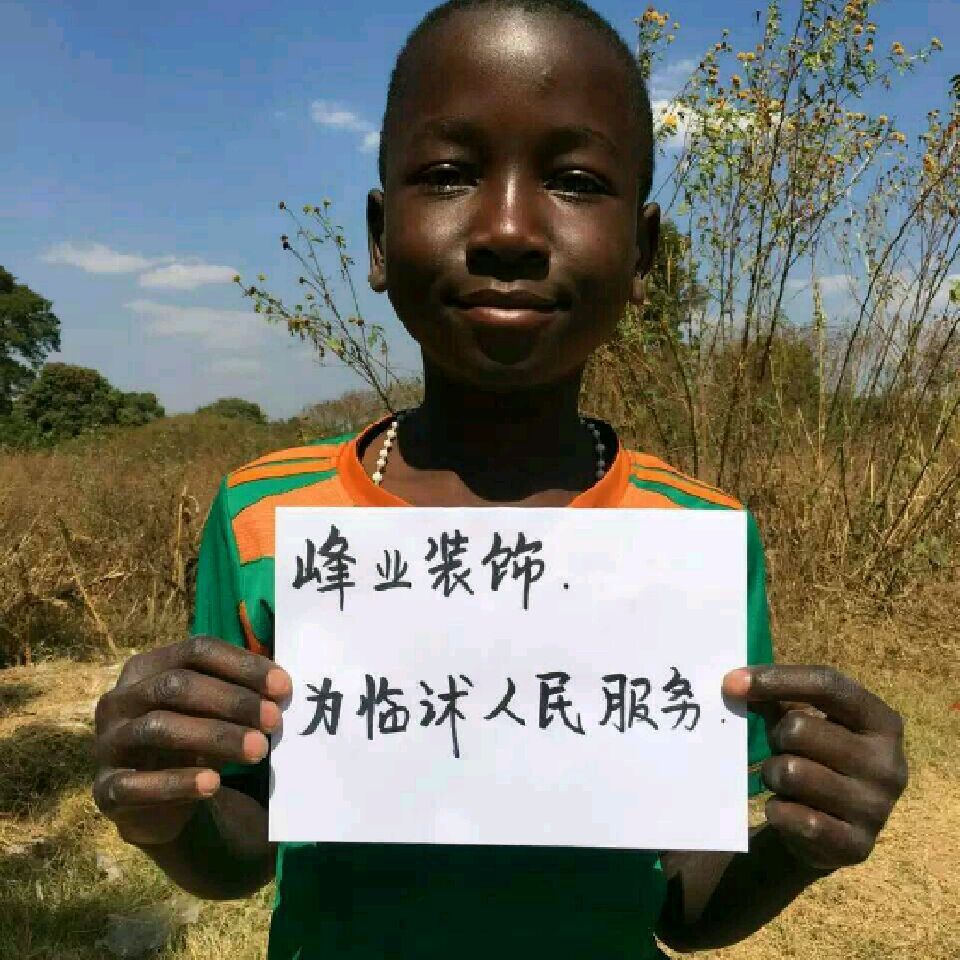 峰业装饰.
为临沭人民服务.